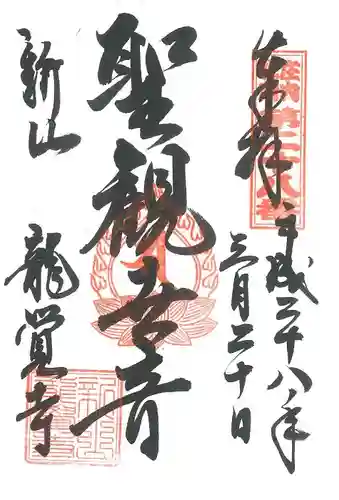 奉拝
平成二十八年
三月二十日
聖観世音
新山
龍覚寺